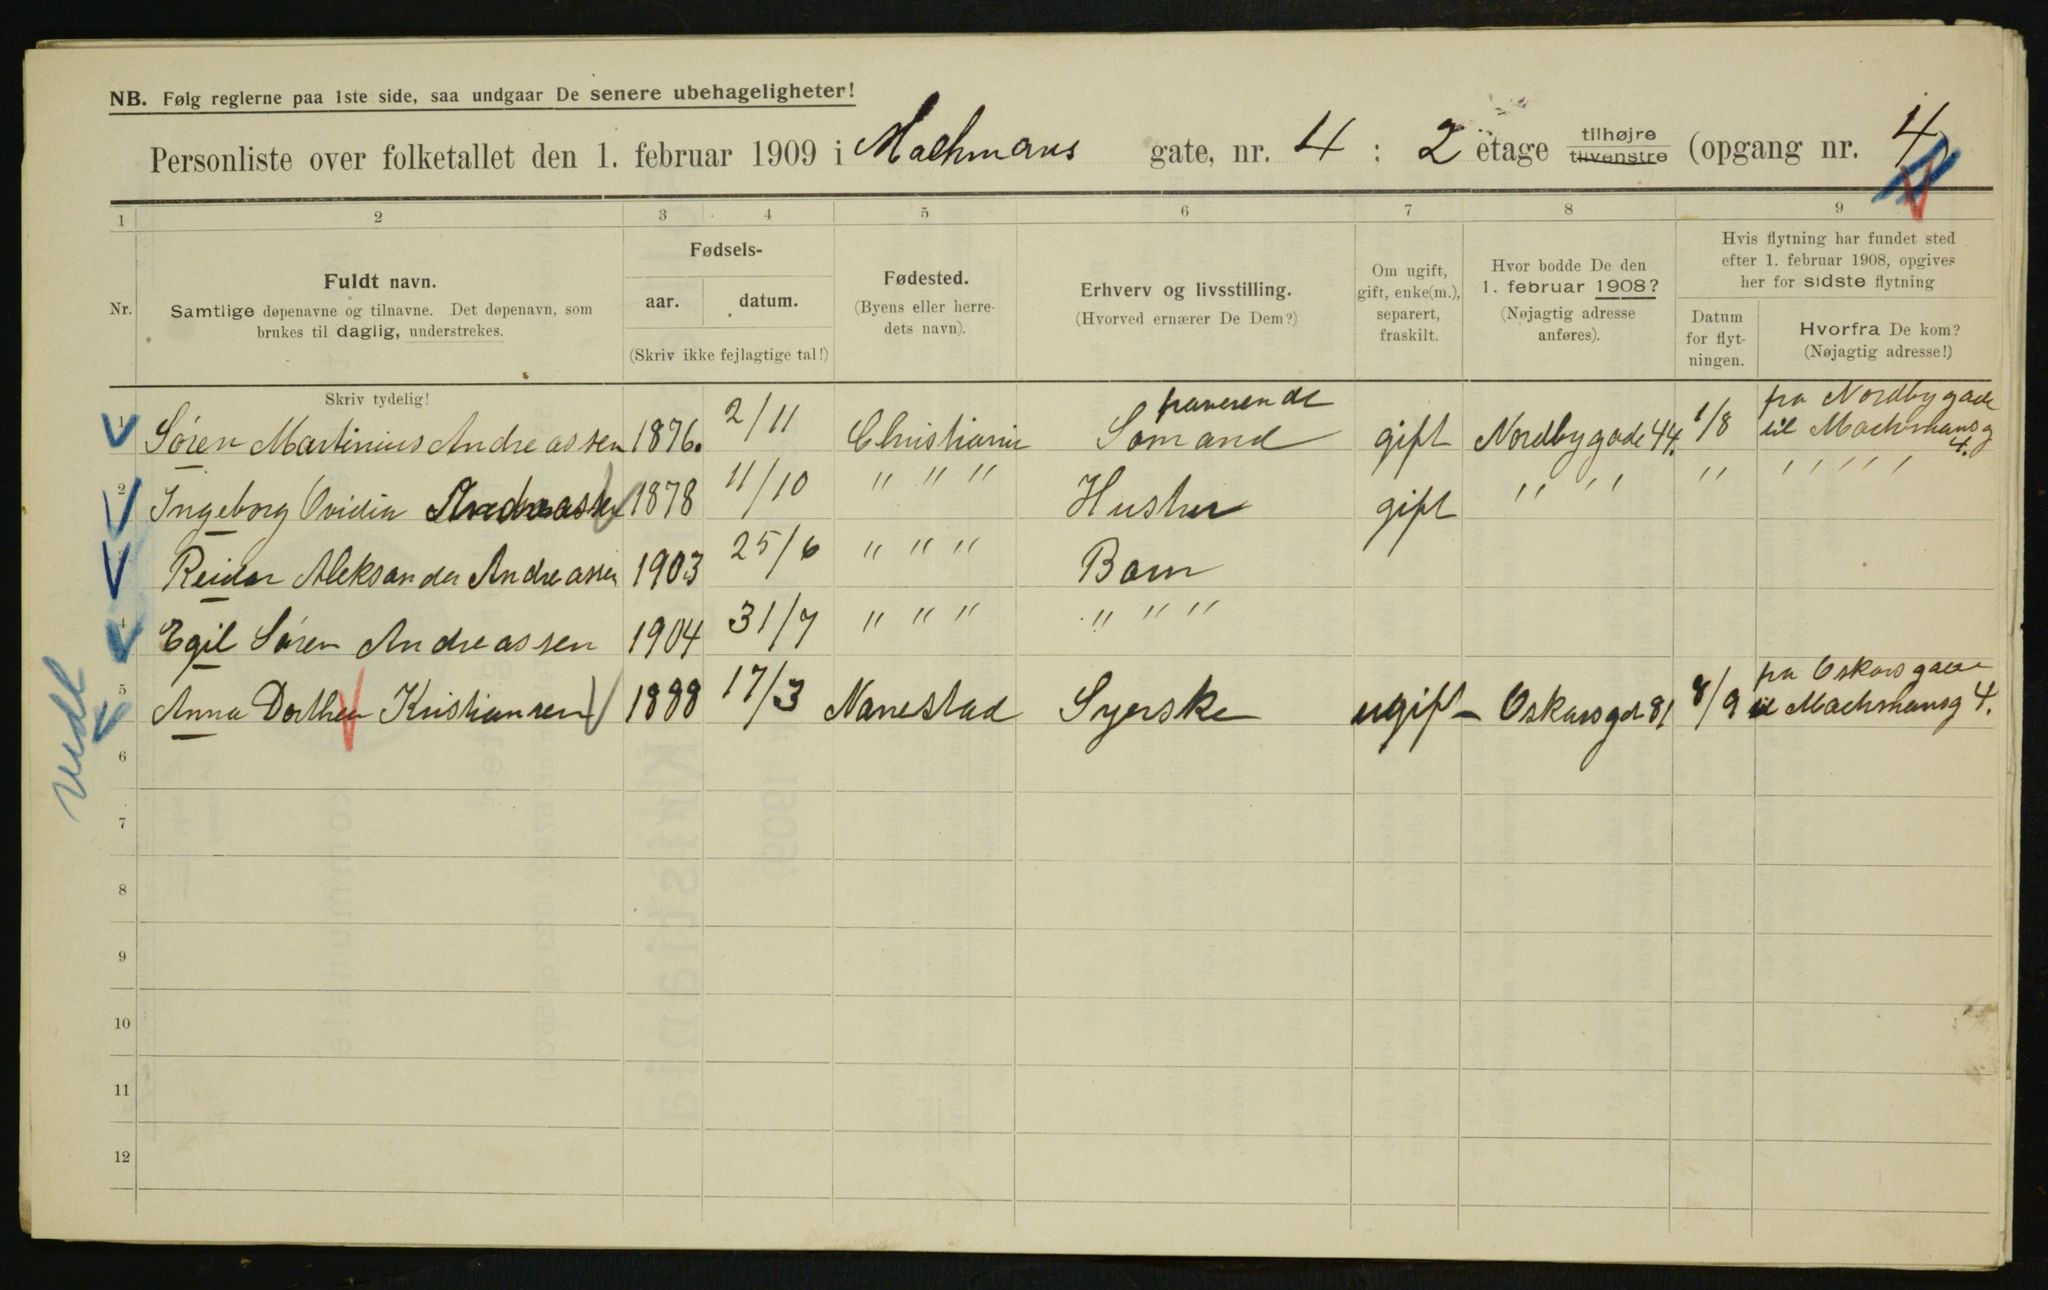 NB. Følg reglerne paa 1ste side, saa undgaar De senere ubehageligheter!
Personliste over folketallet den 1. februar 1909 i Machmans gate, nr. 4 : 2 etage tilhøjre tilvenstre (opgang nr. 4)
1 2 3 4 5 6 7 8 9
Nr.
Fuldt navn.
Samtlige døpenavne og tilnavne. Det døpenavn, som
brukes til daglig, understrekes.
Fødsels-
aar. datum.
(Skriv ikke fejlagtige tal!)
Fødested.
(Byens eller herre-
dets navn).
Erhverv og livsstilling.
(Hvorved ernærer De Dem?)
Om ugift,
gift, enke(m.),
separert,
fraskilt.
Hvor bodde De den
1. februar 1908?
(Nøjagtig adresse
anføres).
Hvis flytning har fundet sted
efter 1. februar 1908, opgives
her for sidste flytning
Datum
for flyt-
ningen.
Hvorfra De kom?
(Nøjagtig adresse!)
Skriv tydelig!
fraverende
fra Nordbygade
1 Søren Martinius Andreassen 1876. 2/11 Christiania Sømand gift Nordbygade 44. 1/8 til Machmansg 4.
2 Ingeborg Ovidia Andreassen 1878 11/10 " " " Hustru gift " " " " " " " "
3 Reidar Aleksander Andreassen 1903 25/6 " " " Barn
4 Egil Søren Andreassen 1904 31/7 " " " " " "
fra Oskarsgade
5 Anna Dorthea Kristiansen 1888 17/3 Nanestad Syerske ugift Oskarsgd 81 8/9 til Machmansg 4.
6
7
8
9
10
11
12